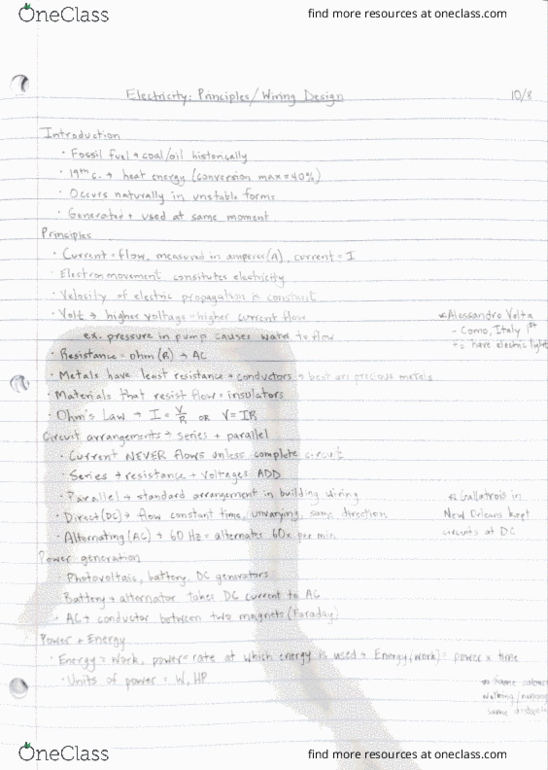 OneClass
find more resources at oneclass.com
Electricity: Principles/Wiring Design
10/8
Introduction
· Fossil fuel → coal/oil historically
· 19th c. → heat energy (conversion max = 40%)
· Occurs naturally in unstable forms
· Generated + used at same moment
Principles
· Current = flow, measured in amperes (A), current = I
· Electron movement consitutes electricity
· Velocity of electric propagation is constant
· Volt → higher voltage = higher current flow
ex. pressure in pump causes water to flow
* Alessandro Volta
- Como, Italy 1st
to have electric light
· Resistance = ohm (R) → AC
· Metals have least resistance → conductors → best are precious metals
· Materials that resist flow = insulators
· Ohm's Law → I = V/R OR V = IR
Circuit arrangements → series + parallel
· Current NEVER flows unless complete circuit
· Series → resistance + voltages ADD
· Parallel → standard arrangement in building wiring
· Direct (DC) → flow constant time, unvarying, same direction
· Alternating (AC) → 60 Hz = alternates 60x per min
* in
New Orleans kept
circuits at DC
Power generation
· Photovoltaic, battery, DC generators
Battery → alternator takes DC current to AC
· AC → conductor between two magnets (Faraday)
Power + Energy
· Energy = work, power = rate at which energy is used → Energy (work) = power x time
· Units of power = W, HP
* same
walking/
same
OneClass
find more resources at oneclass.com